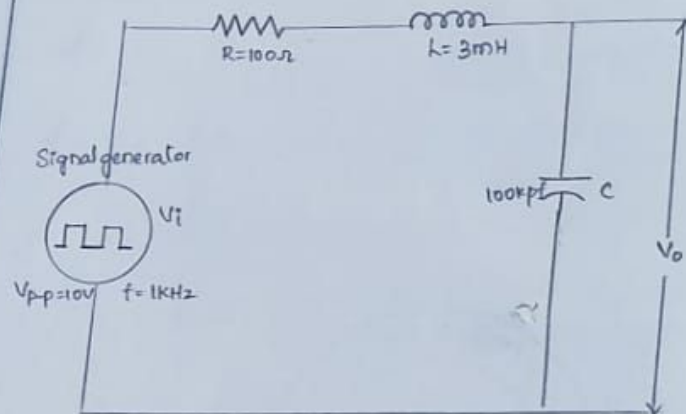 R=100Ω
L=3mH
Signal generator
Vi
Vp-p=10V f=1KHz
100kpf C
Vo